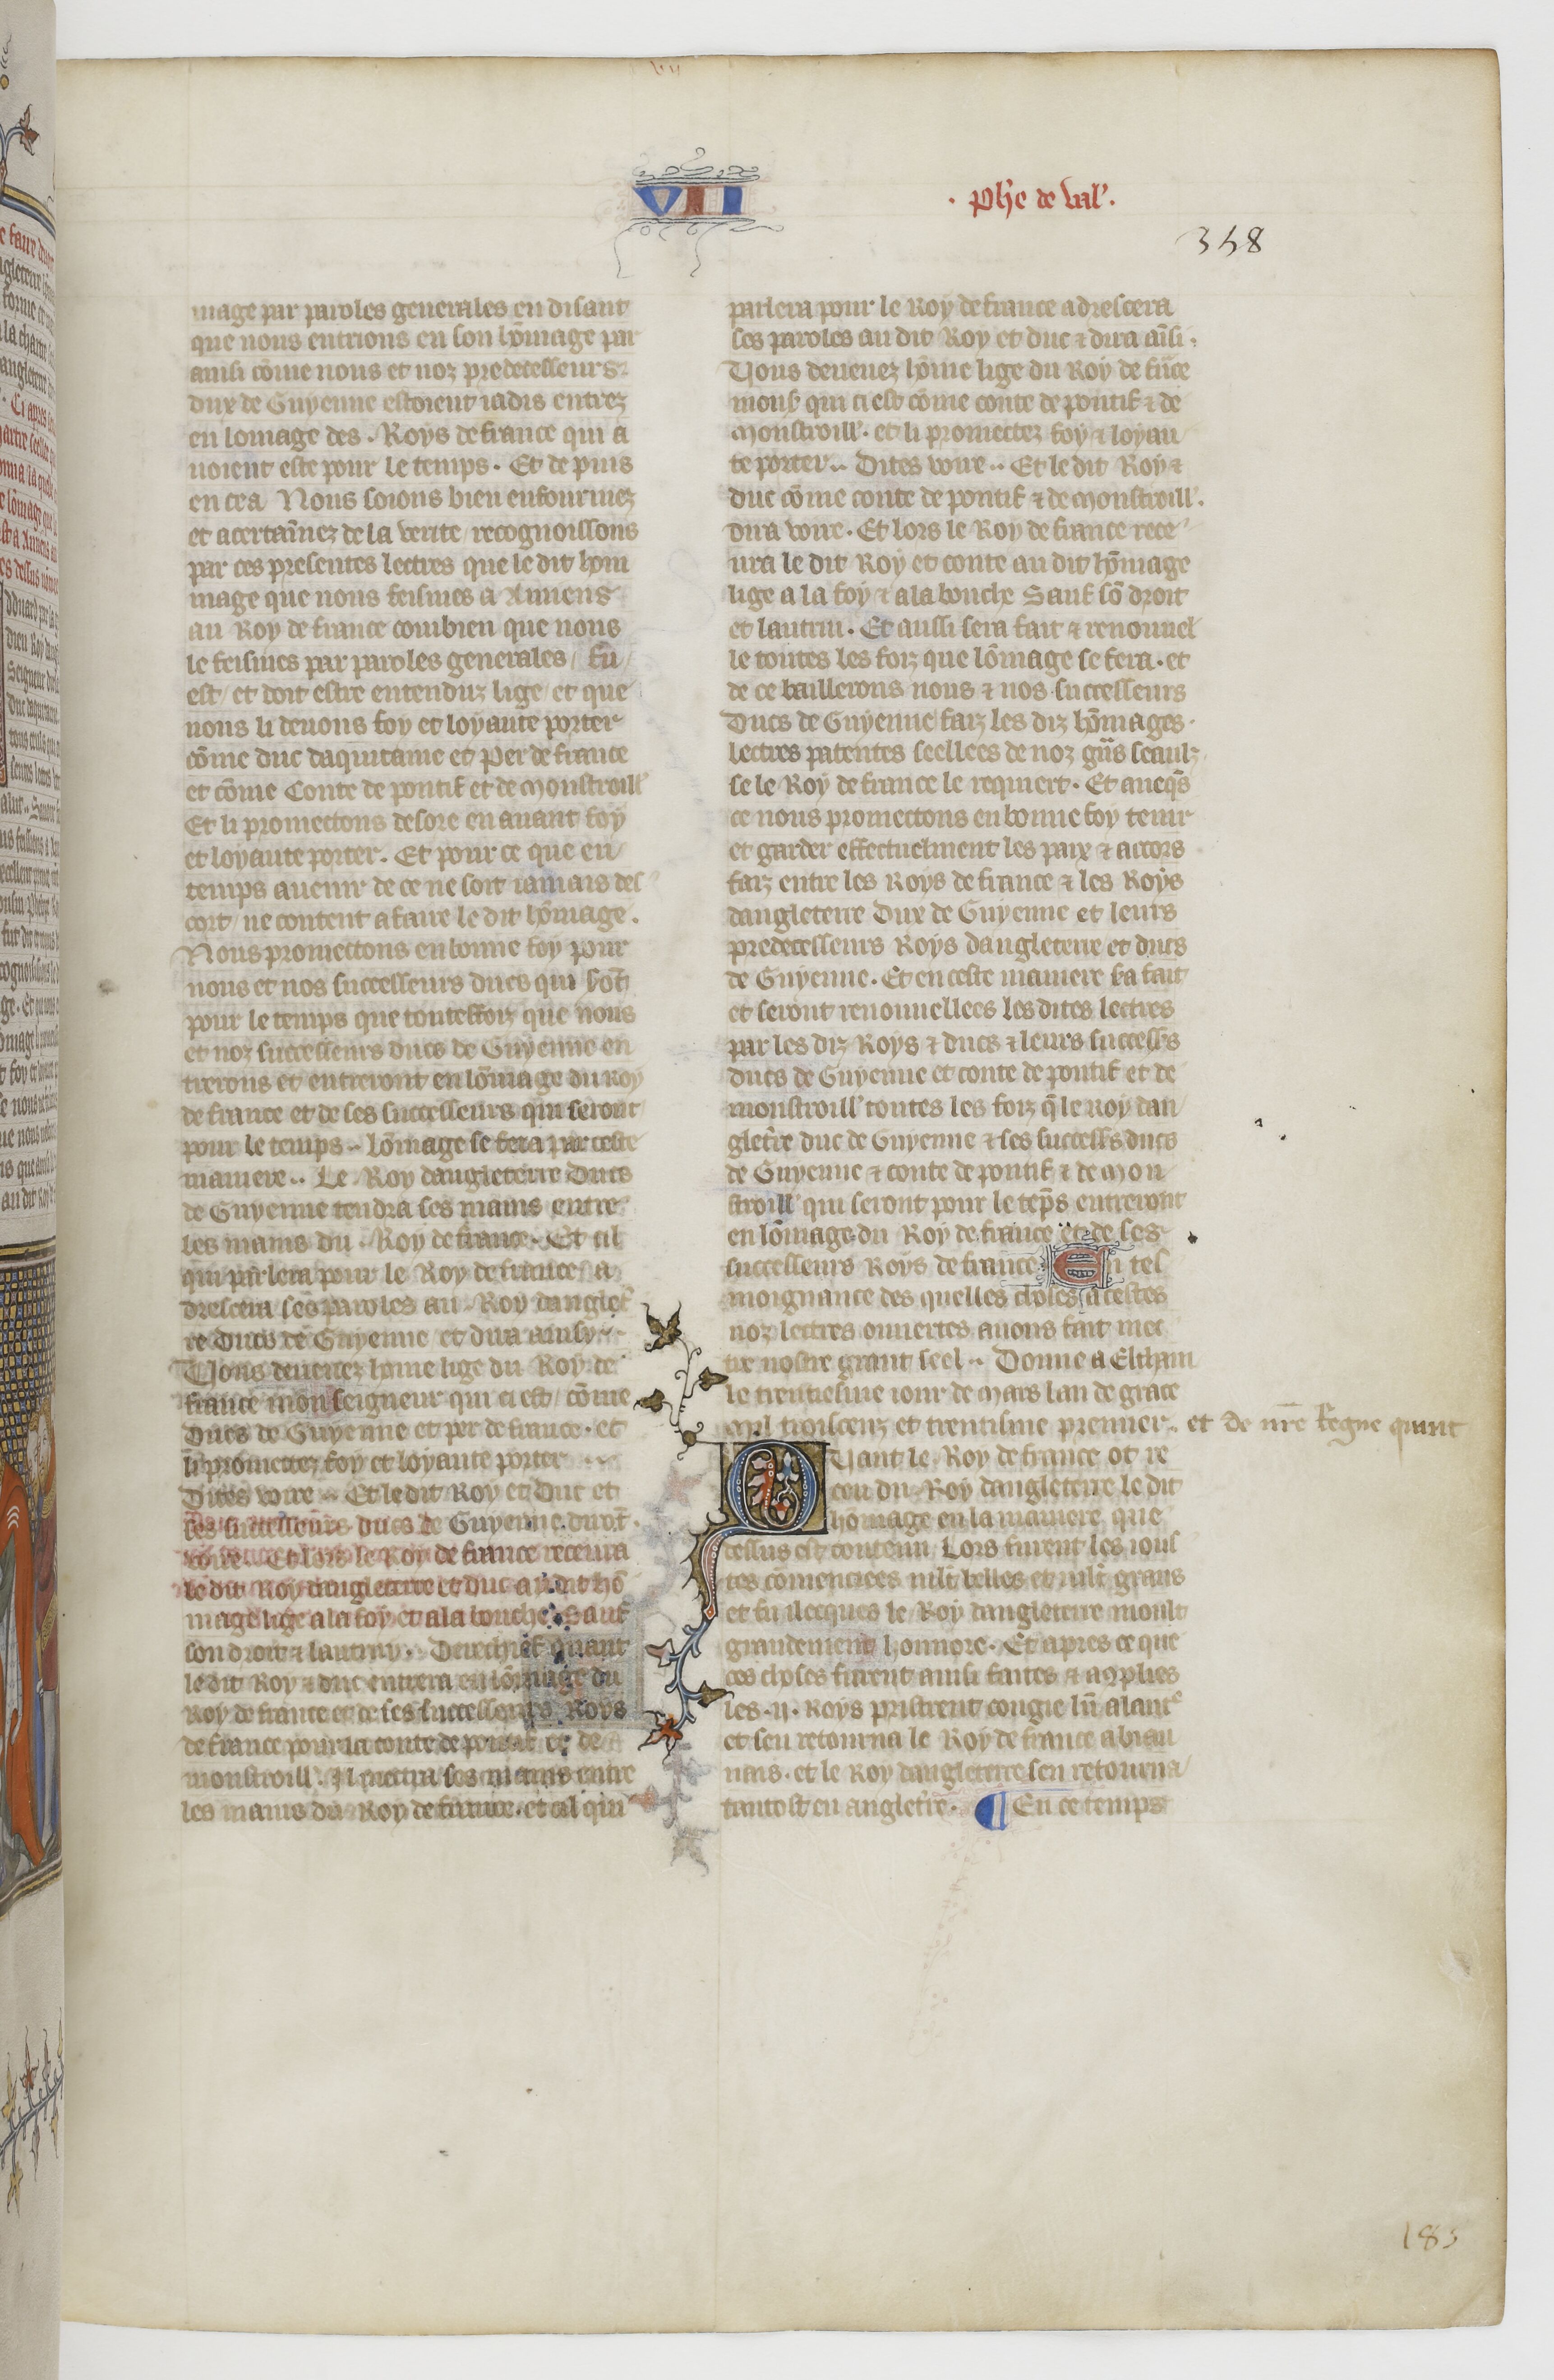 VII
· Phē de val'.
358
mage par paroles generales en disant
que nous entrions en son hōmage par
ainsi cōme nous et noz predecesseurs
dux de Guyenne estoient iadis entrez
en lomage des . Roys de france qui a
uoient este pour le temps . Et de puis
en cea Nous soions bien enfourmez
et acertaīnez de la verite recognoissons
par ces presentes lectres que le dit hom
mage que nous feismes a Amiens
au Roy de france combien que nous
le feismes par paroles generales / fu /
est / et doit estre entenduz lige / et que
nous li deuons foy et loyaute porter
cōme duc daquitaine et Per de france
et cōme Conte de pontif et de Monstroill'
Et li promectons desore en auant foy
et loyaute porter . Et pour ce que en
temps auenir de ce ne soit iamais des
cort / ne content a faire le dit hōmage .
Nous promectons en bonne foy pour
nous et nos successeurs ducs qui s̄ōt
pour le temps que toutesfoiz que nous
et noz successeurs ducs de Guyenne en
trerons et entreront en lōmage du Roy
de france et de ses successeurs qui seront
pour le temps .. lōmage se fera par ceste
maniere .. Le . Roy dangleterre Ducs
de Guyenne tendra ses mains entre
les mains du . Roy de france . Et cil
qui parlera pour le Roy de france / a
drescera ses paroles au . Roy dangleť
re Ducs de Guyenne et dira ainsy ..
Vous deuenez hōme lige du Roy de
france monseigneur qui ci est / cōme
Ducs de Guyenne et per de france . et
li promettez foy et loyaute porter
Dites voire .. Et le dit Roy et Duc et
ses successeurs ducs de Guyenne dirōt .
voire .. Et lors le Roy de france receura
le dit Roy dangleterre et duc au dit hō
mage lige a la foy et a la bouche . Sauf
son droit & lautruy . Derechief quant
le dit Roy & duc entrera en lōmage du
Roy de france et de ses successeurs Roys
de france pour la conte de pontif et de
monstroill . Il mettra ses mains entre
les mains du Roy de france . et cil qui
parlera pour le Roy de france adrescera
ses paroles au dit Roy et duc & dira aīsi .
Vous deuenez hōme lige du Roy de frāce
mons̄ qui ci est cōme conte de pontif & de
Monstroill' . et li promectez foy & loyau
te porter .. Dites voire .. Et le dit Roy &
duc cōme conte de pontif & de Monstroill' .
dira voire . Et lors le Roy de france rece
ura le dit Roy et conte au dit hōmage
lige a la foy & a la bouche Sauf sō droit
et lautrui . Et aussi sera fait & renouuel
le toutes les foiz que lōmage se fera . et
de ce baillerons nous & nos successeurs
Ducs de Guyenne faiz les diz hōmages .
lectres patentes seellees de noz grās seaulz
se le Roy de france le requiert . Et auecq̄s
ce nous promectons en bonne foy tenir
et garder effectuelment les paix & accors
faiz entre les Roys de france & les Roys
dangleterre Dux de Guyenne et leurs
predecesseurs Roys dangleterre et ducs
de Guyenne . Et en ceste maniere s̄a fait
et seront renouuellees les dites lectres
par les diz Roys & ducs & leurs success̄s
ducs de Guyenne et conte de pontif et de
monstroill' toutes les foiz q̄ le Roy dan
gleťre duc de Guyenne & ses success̄s ducs
de Guyenne & conte de pontif & de Mon
stroill' qui seront pour le tēps entreront
en lōmage du Roy de france et de ses
successeurs Roys de france . En tes
moignance des quelles choses a cestes
noz lectres ouuertes auons fait met
tre nostre grant seel .. Donne a Eltham
le trentiesme iour de Mars lan de grace
mil troiscenz et trentisme premier .. et de nr̄e regne quint
Quant le . Roy de france ot re
ceu du . Roy dangleterre le dit
hōmage en la maniere que
dessus est contenu / Lors furent les ious
tes cōmenciees ml̄t belles et ml̄t grans
et fu illecques le Roy dangleterre moult
grandement honnore . Et apres ce que
ces choses furent ainsi faites & aɔplies
les .ij. Roys pristrent congie lū a lautᵉ
et sen retourna le Roy de france a biau
uais . et le Roy dangleterre sen retourna
tantost en angleťre . ¶ En ce temps
185